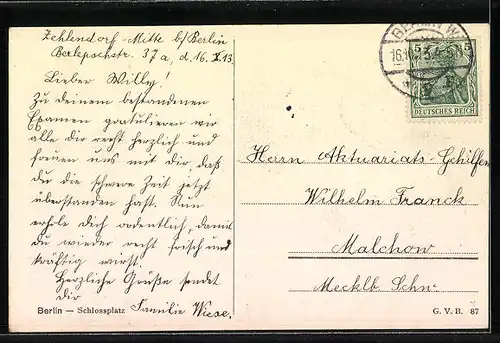 Zehlendorf-Mitte b/Berlin
Berlepschstr. 37a, d. 16. X. 13
Lieber Willy!
Zu deinem bestandenen
Examen gratulieren wir
alle dir recht herzlich und
freuen uns mit dir daß
du die schwere Zeit jetzt
überstanden hast. Nun
erhole dich ordentlich, damit
du wieder recht frisch und
kräftig wirst.
Herzliche Grüße sendet
dir
Familie Wiese.
Berlin — Schlossplatz
BERLIN W
16.10.13. 4-5 N
5 5
DEUTSCHES REICH
Herrn Aktuariats-Gehilfen
Wilhelm Franck
Malchow
Mecklb. Schw.
G. V. B. 87